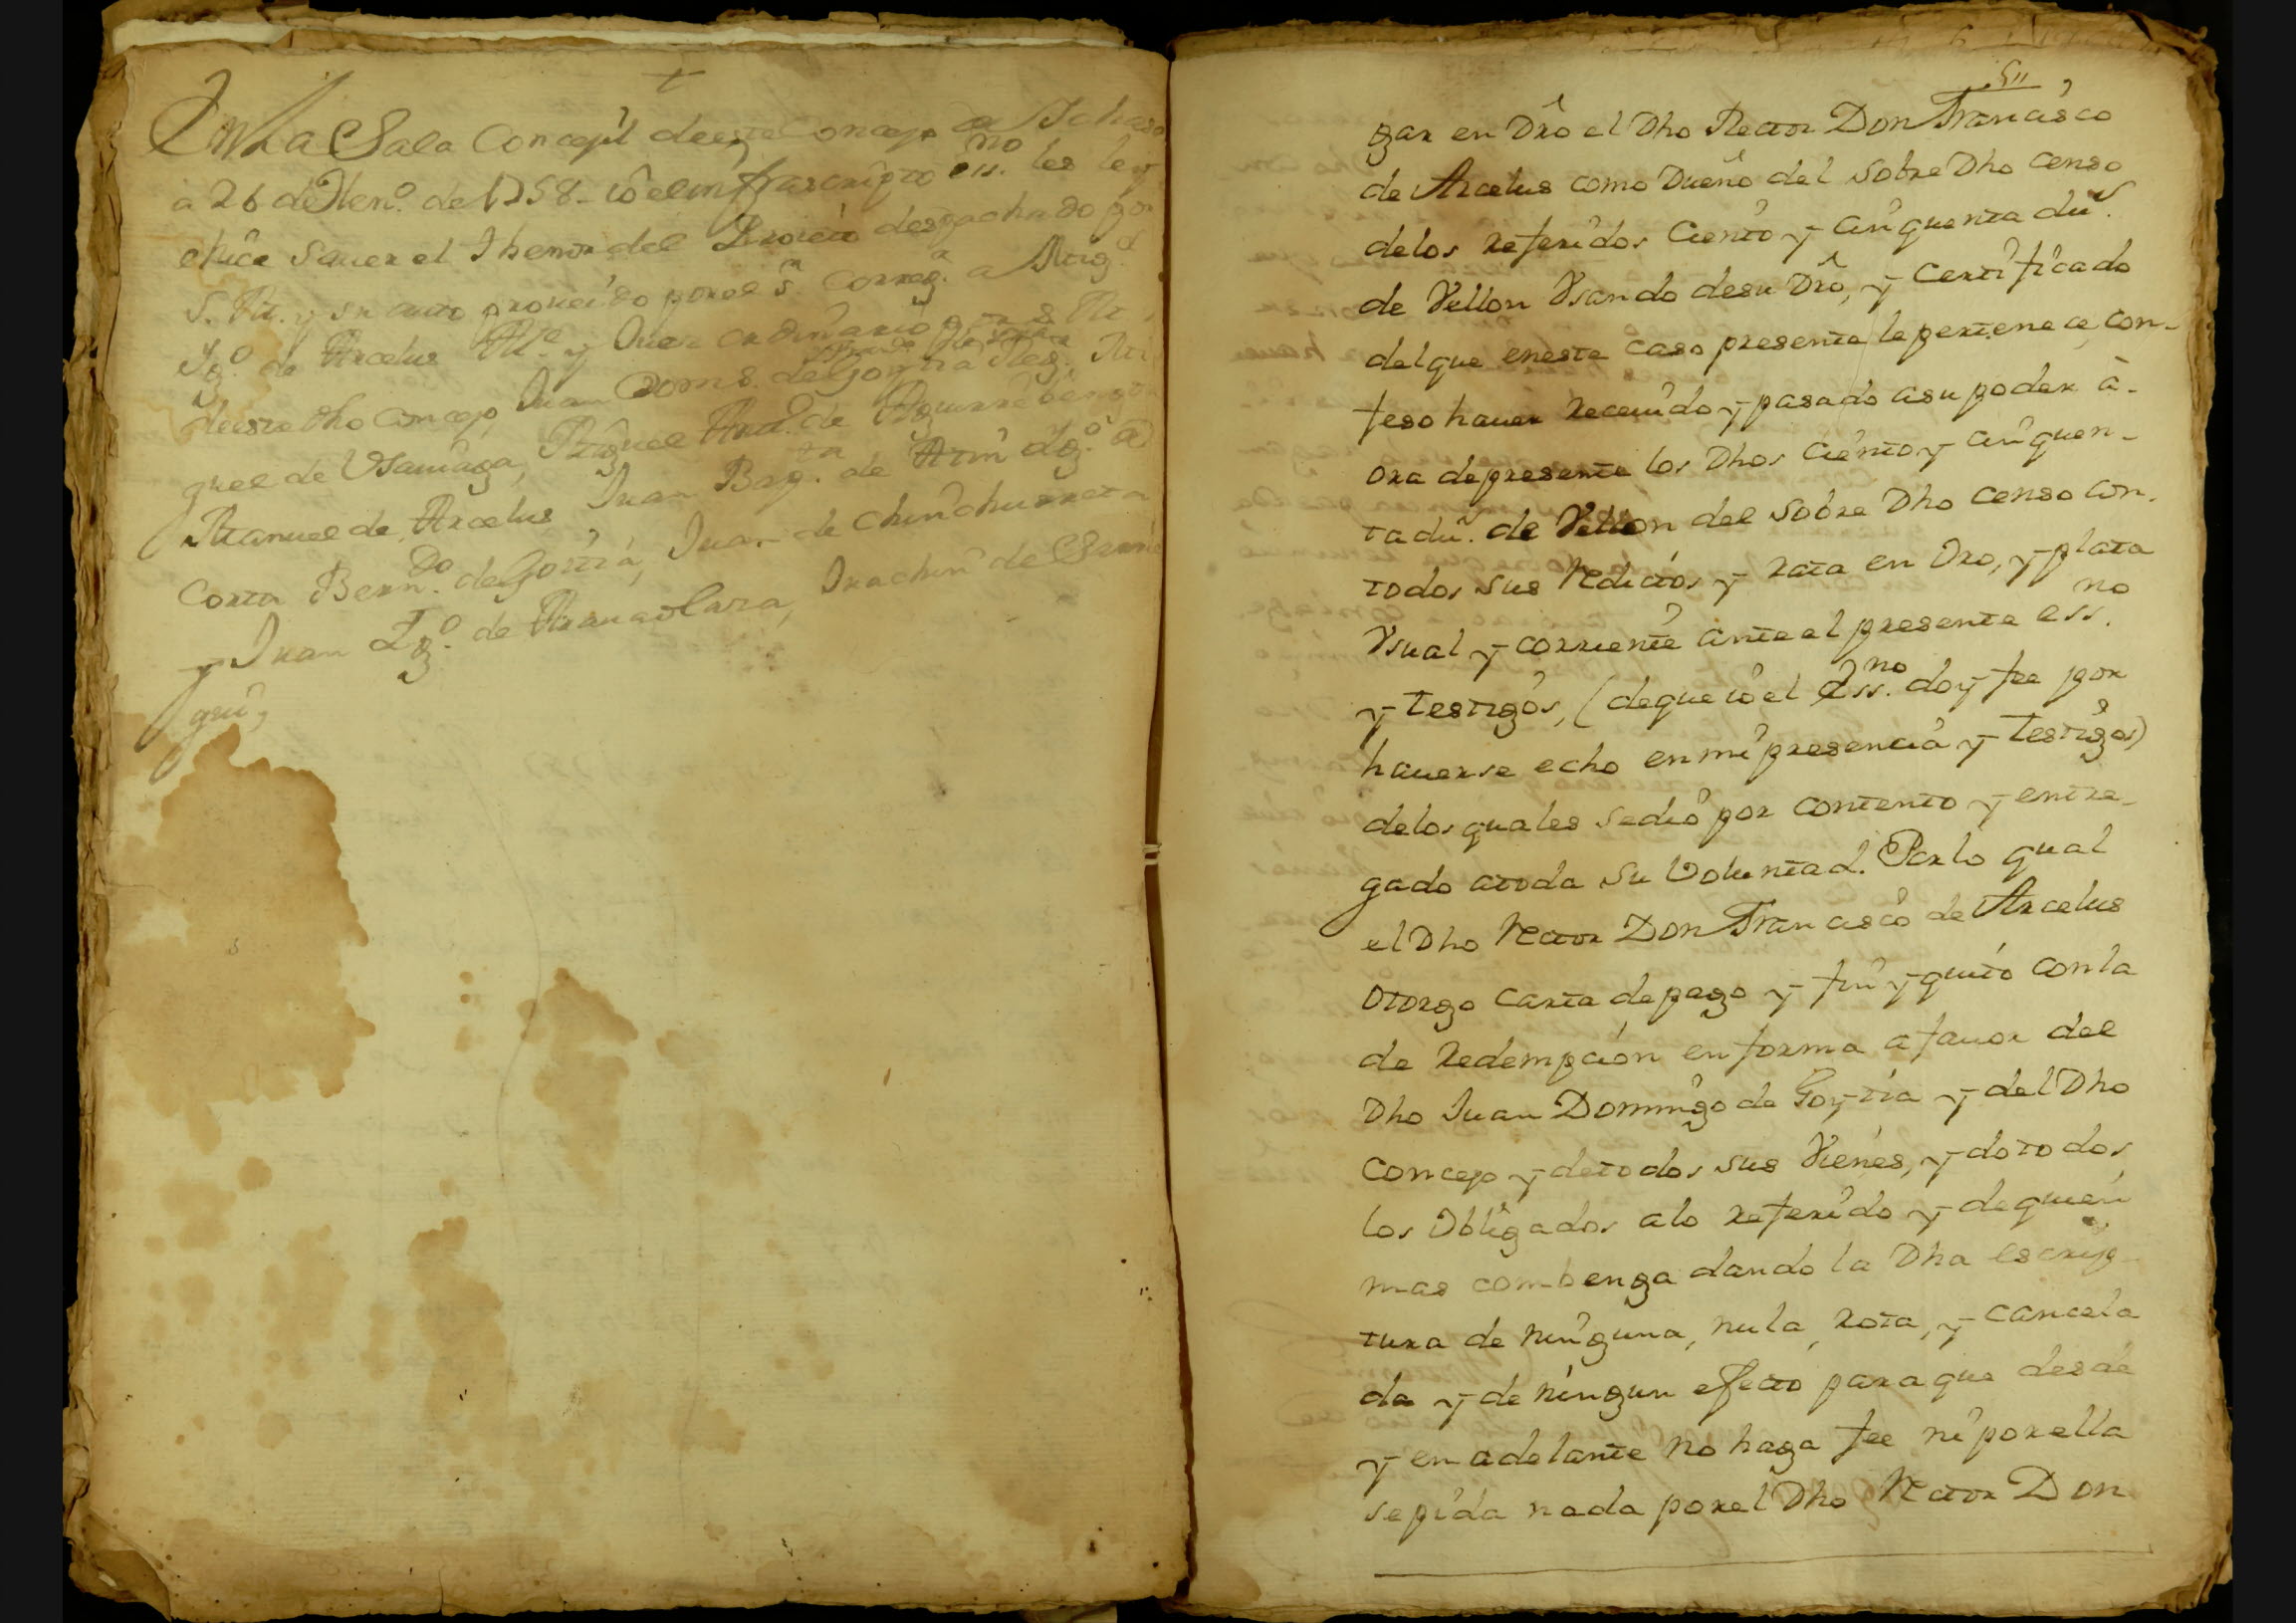 En La Sala Concejil de este Concejo de Ichaso
a 26 de Hen.º de 1758. io el infrascripto ess.no les ley
e hice sauer el Thenor del
S. M. y su auto proueido por el s.r Correg.r a Mig.l
Ig.º de Arcelus Alc.e y Juez ordinario por S. M.
de este dho concejo, Juan Dom.º de Goytia Reg.r
guel de Usauiaga, Miguel Ant.º de Aguirrebengoa
Manuel de Arcelus Juan Bap.ta de Ig.º de
Corta Bern.do de Goitia, Juan de Chinchurreta
y Juan Ig.º de Aranaolaza, Juachin de
gui,
511
gar en Dro el Dho Rector Don Francisco
de Arcelus como Dueño del sobre Dho censo
delos referidos Ciento y cinquenta du.s
de Vellon Vsando desu Dro, y Certificado
delque eneste caso presente le pertenece, con-
feso hauer receuido y pasado asu poder a-
ora depresente los Dhos Ciento y cinquen-
ta du.s de Vellon del sobre Dho censo con.
todos sus redictos y rata en Oro, y plata
Vsual y corriente ante el presente ess.no
y testigos, (deque io el Ess.no doy fee por
hauerse echo en mi presencia y testigos)
delos quales sedio por contento y entre-
gado atoda su Voluntad. Por lo qual
el Dho Rector Don Francisco de Arcelus
Otorgo Carta depago y fin y quito con la
de Redempcion en forma a fauor del
Dho Juan Domingo de Goytia y del Dho
Concejo y detodos sus Vienes, y dotodos
los Obligados alo referido y dequien
mas combenga dando la Dha escrip
tura de ninguna, nula, rota, y cancela
da y de ningun efecto para que desde
y en adelante no haga fee ni por ella
sepida nada porel Dho Rector Don